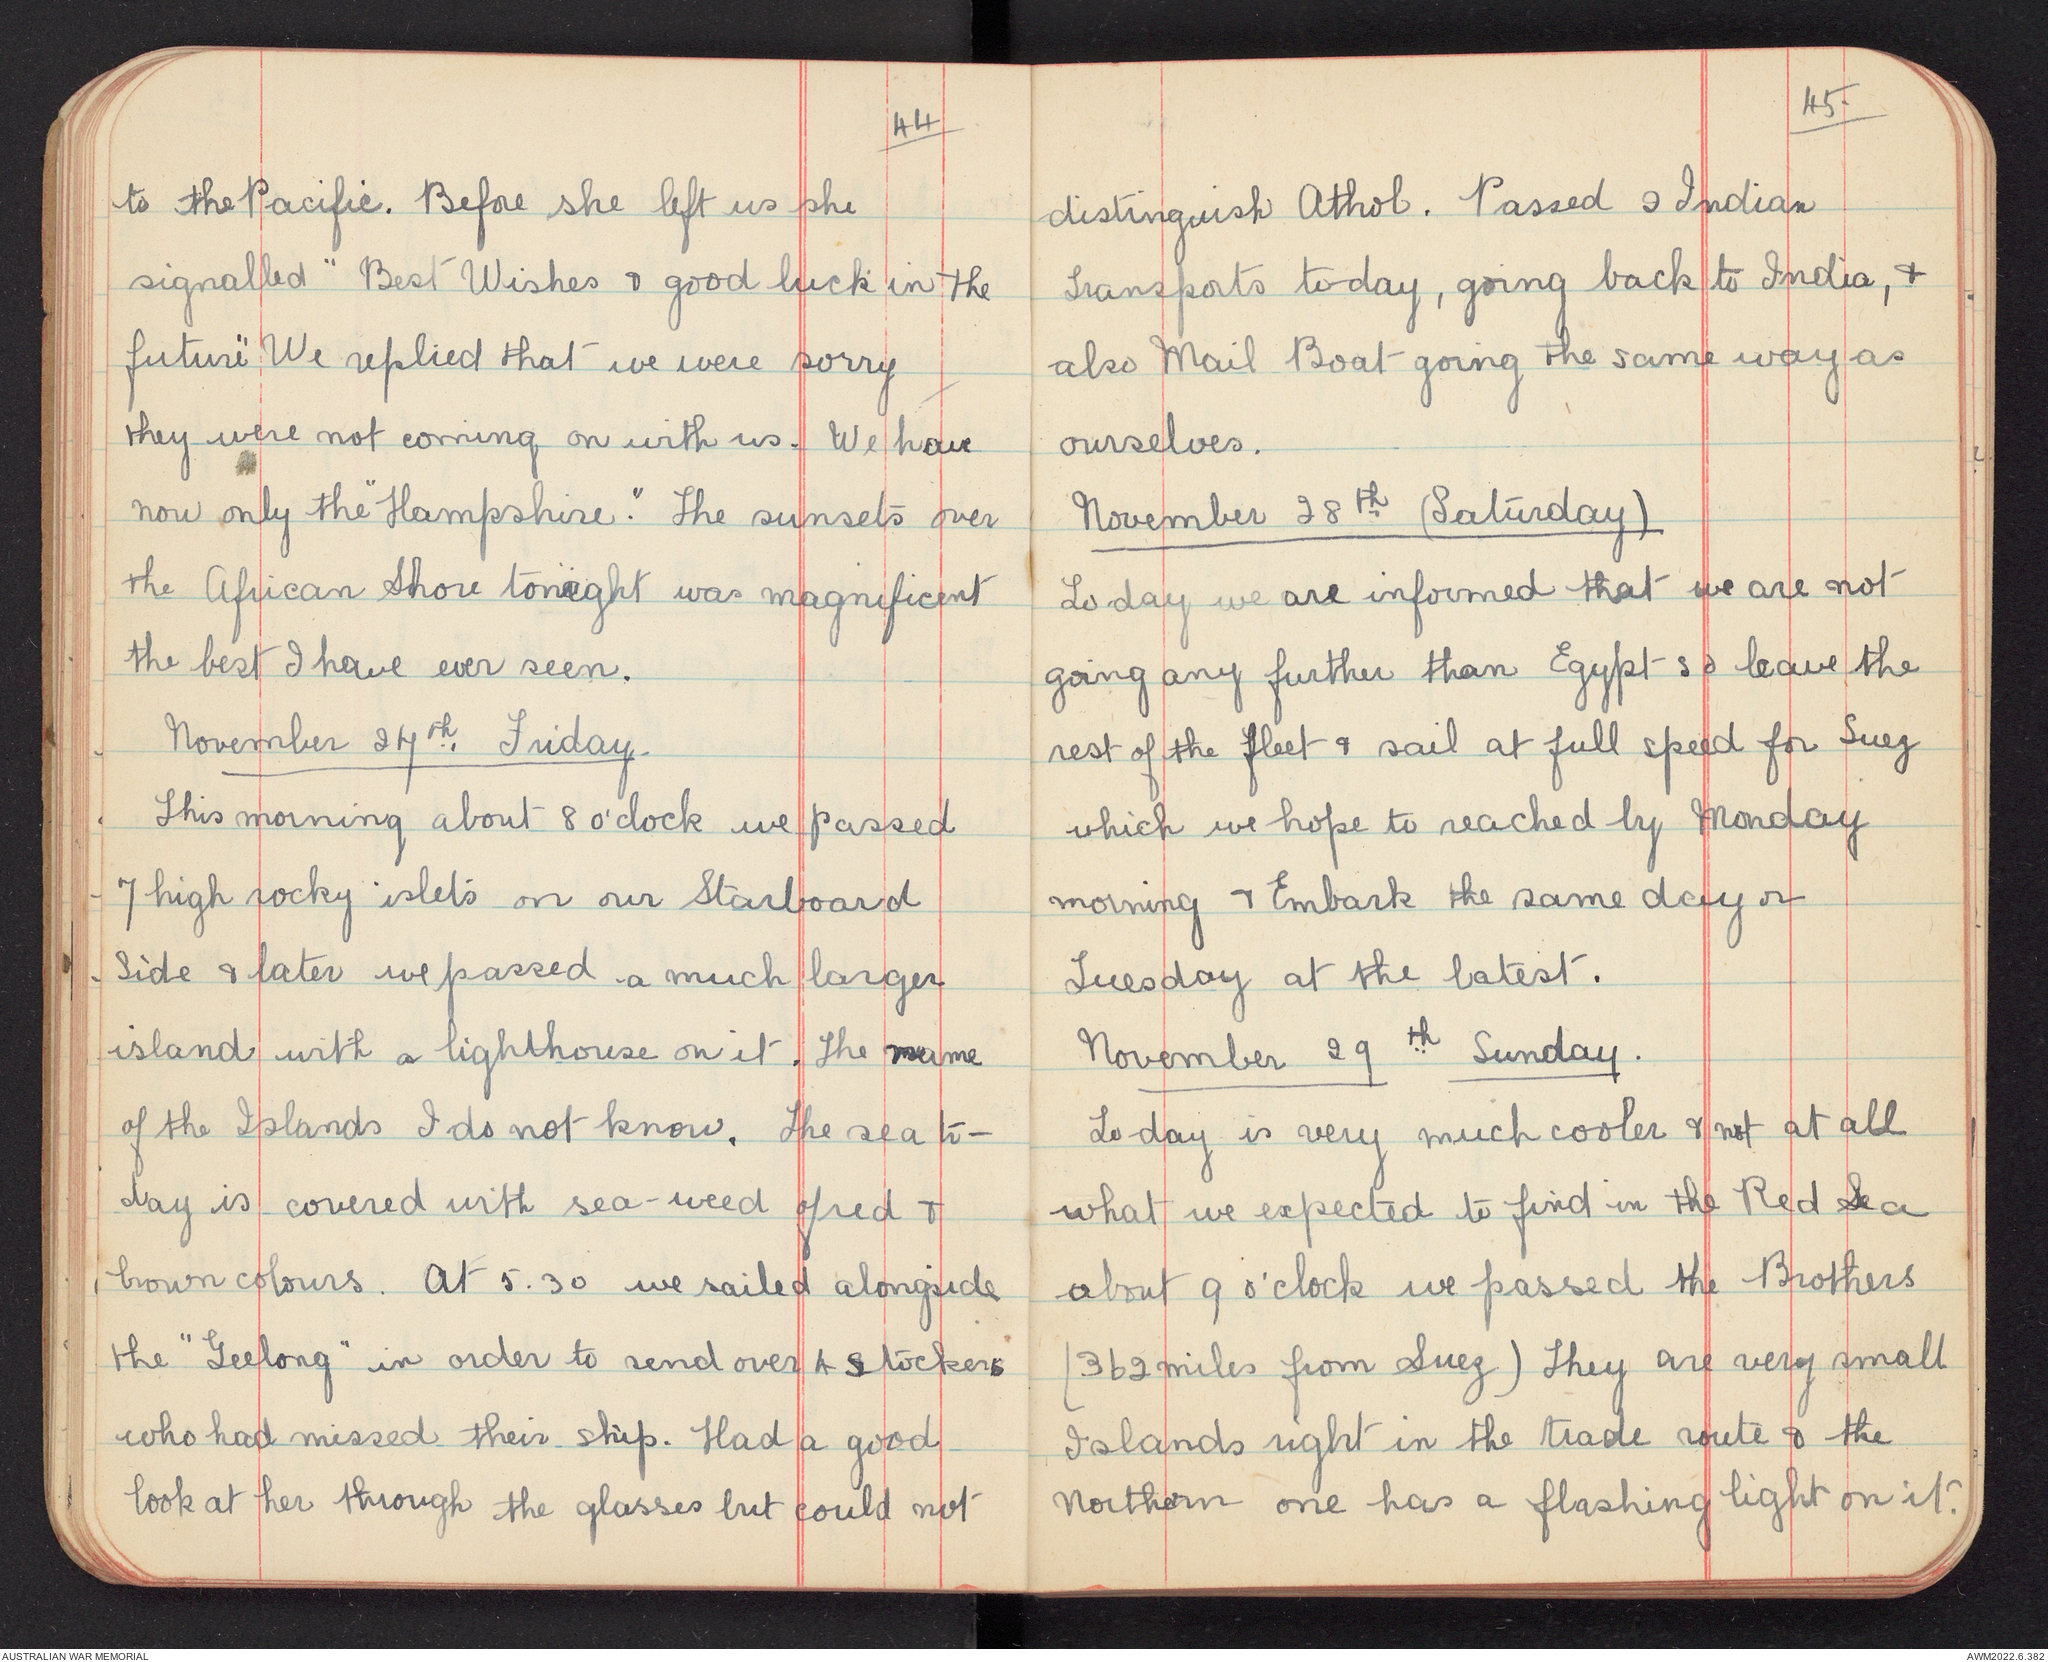 44
to the Pacific. Before she left us she
signalled "Best Wishes & good luck in the
future" We replied that we were sorry
they were not coming on with us. We have
now only the "Hampshire". The sunsets over
the African Shore tonight was magnificent
the best I have ever seen.
November 27th. Friday.
This morning about 8 o'clock we passed
7 high rocky islets on our Starboard
Side & later we passed a much larger
island with a lighthouse on it. The name
of the Islands I do not know. The sea to-
day is covered with sea-weed of red &
brown colours. At 5.30 we sailed alongside
the "Geelong" in order to send over 4 Stockers
who had missed their ship. Had a good
look at her through the glasses but could not
45.
distinguish Athol. Passed 2 Indian
Transports today, going back to India, &
also Mail Boat going the same way as
ourselves.
November 28th (Saturday)
To day we are informed that we are not
going any further than Egypt so leave the
rest of the fleet & sail at full speed for Suez
which we hope to reached by Monday
morning & Embark the same day or
Tuesday at the latest.
November 29th Sunday.
To day is very much cooler & not at all
what we expected to find in the Red Sea
about 9 o'clock we passed the Brothers
(362 miles from Suez) They are very small
Islands right in the trade route & the
Northern one has a flashing light on it.
AUSTRALIAN WAR MEMORIAL
AWM2022.6.382